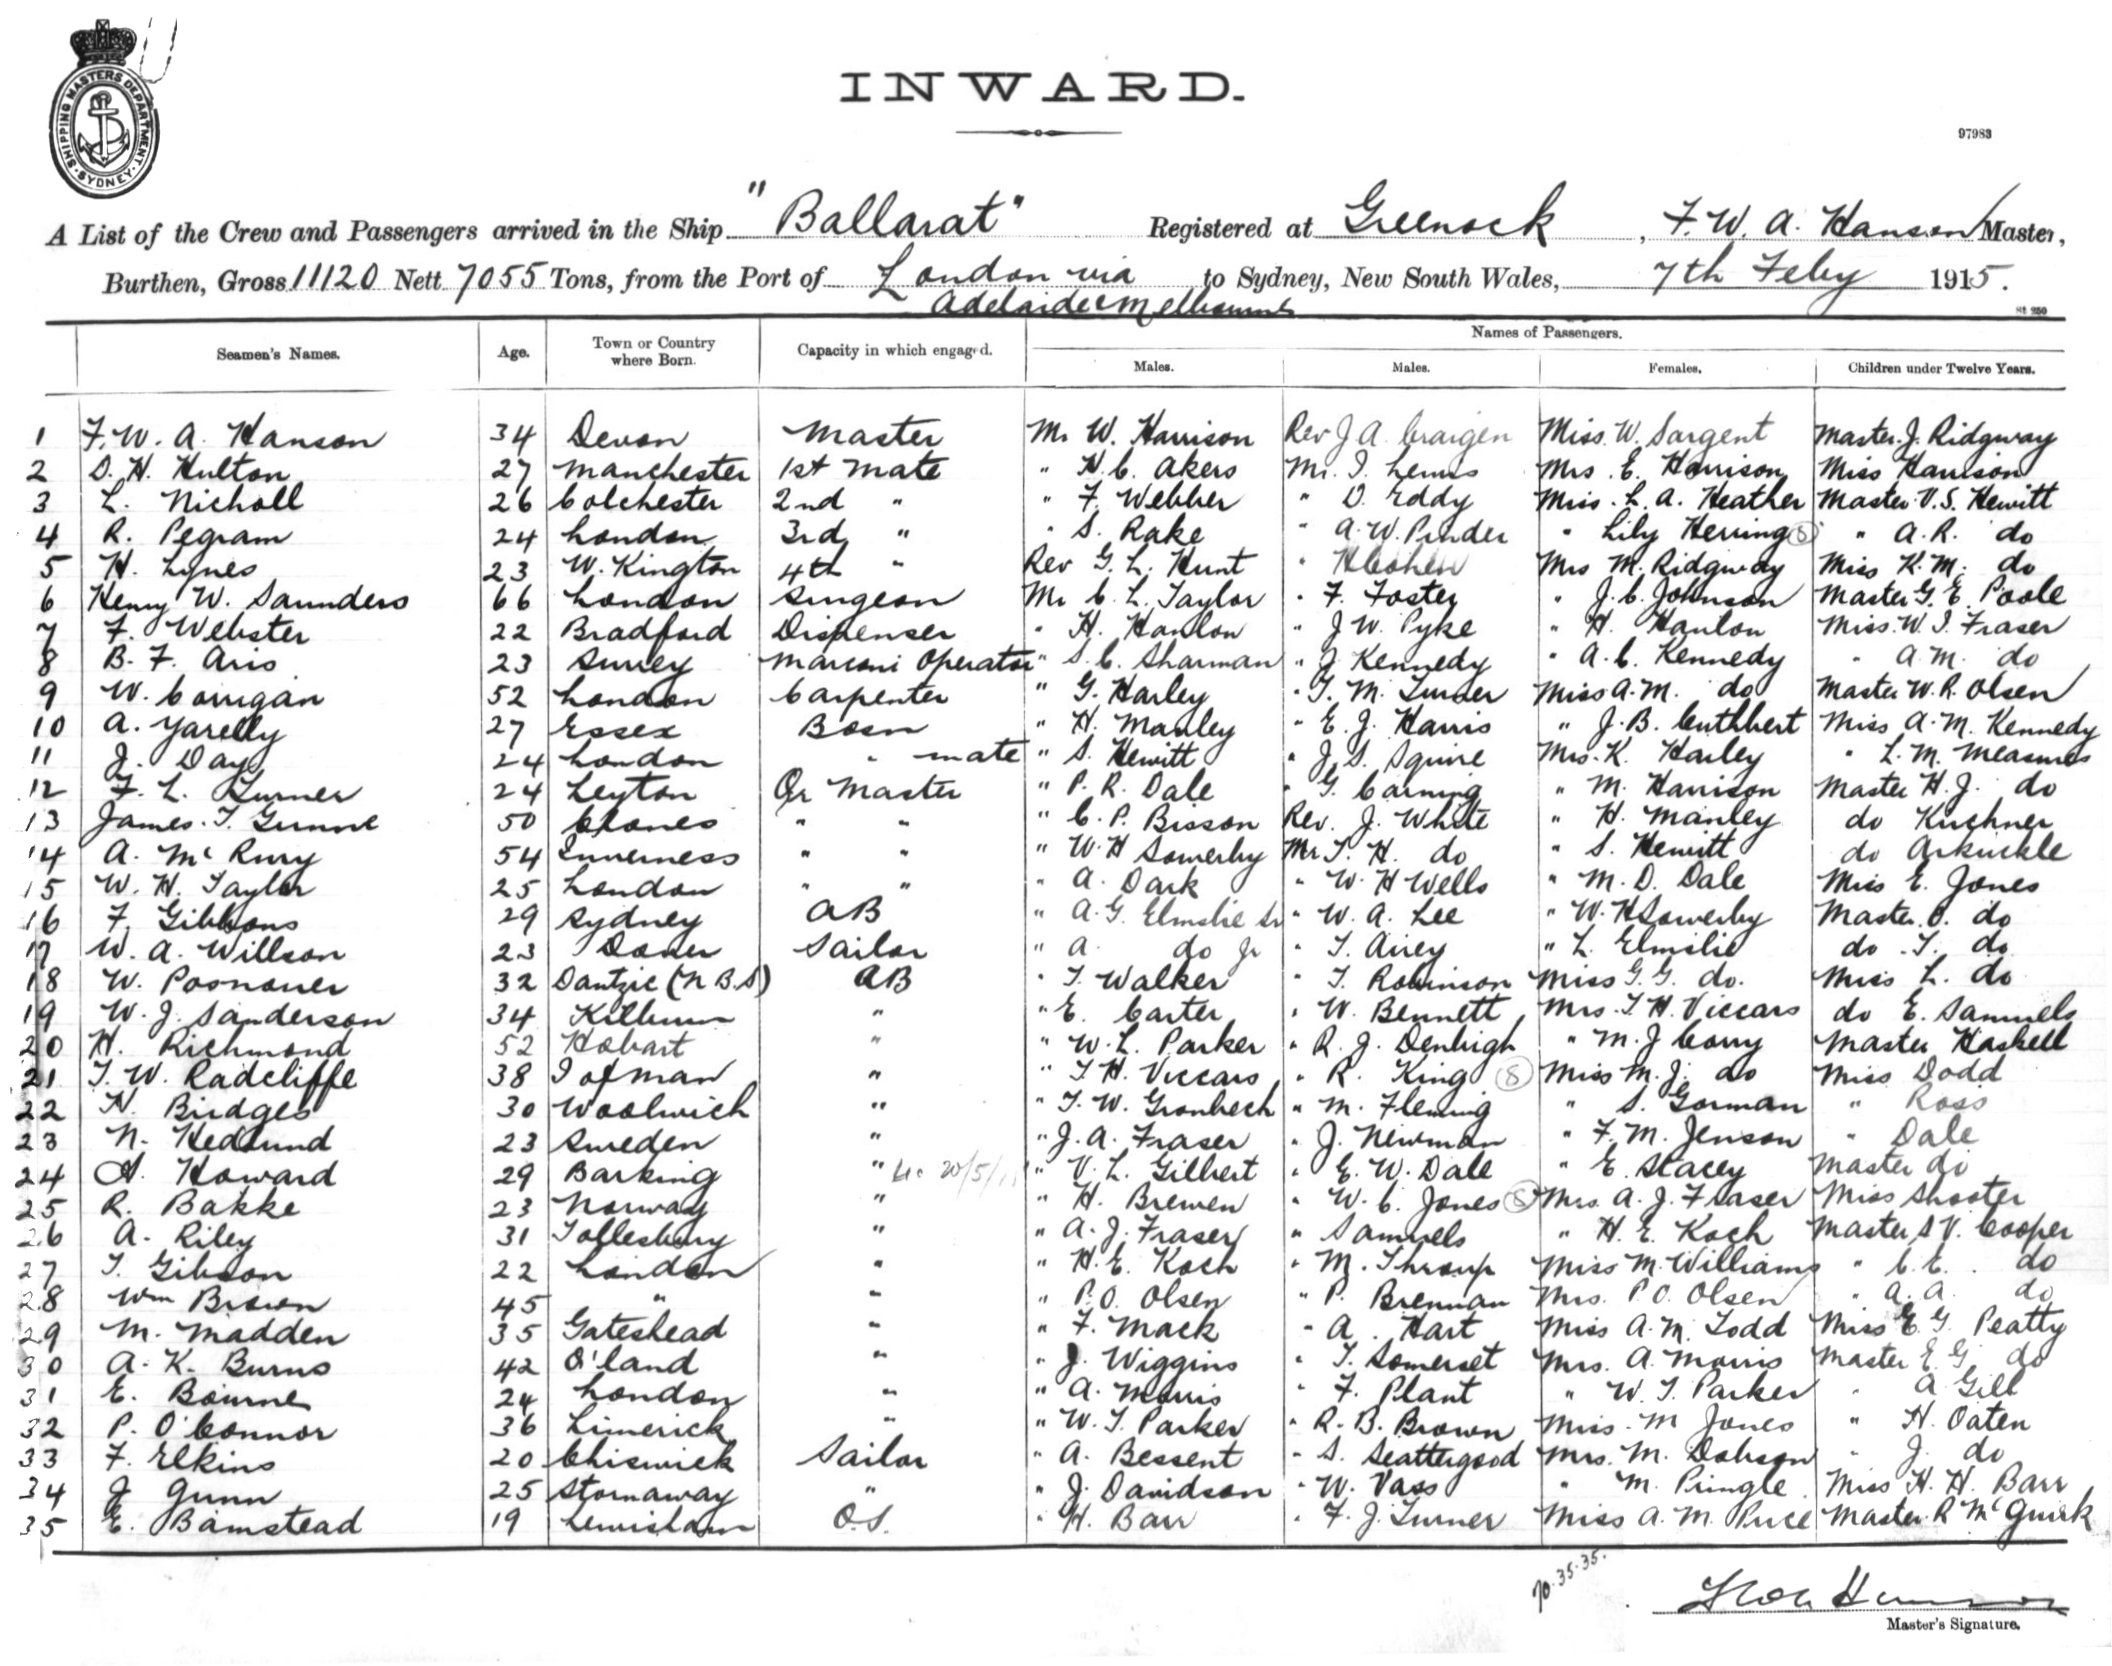 SHIPPING MASTERS DEPARTMENT. SYDNEY.
INWARD.
97983
A List of the Crew and Passengers arrived in the Ship "Ballarat" Registered at Greenock, F. W. A. Hanson Master,
Burthen, Gross 11120 Nett 7055 Tons, from the Port of London via to Sydney, New South Wales, 7th Feby 1915.
Adelaide & Melbourne
St 250
Seamen's Names. Age. Town or Country where Born. Capacity in which engaged. Names of Passengers.
Males. Males. Females. Children under Twelve Years.
1 F. W. A. Hanson 34 Devon Master Mr W. Harrison Rev J A Craigen Miss W. Sargent Master J. Ridgway
2 D. H. Hulton 27 Manchester 1st Mate " H. C. Akers Mr. I. Lewis Mrs E. Harrison Miss Harrison
3 L. Nicholl 26 Colchester 2nd " " F. Webber " D. Eddy Miss L. A. Heather Master V. S. Hewitt
4 R. Pegram 24 London 3rd " " S. Rake " A. W. Pinder " Lily Herring (8) " A. R. do
5 H. Lynes 23 W. Kington 4th " Rev G. L. Hunt " H Cohen Mrs M. Ridgway Miss K. M. do
6 Henry W. Saunders 66 London Surgeon Mr C. L. Taylor " F. Foster " J. C. Johnson Master G. E. Poole
7 F. Webster 22 Bradford Dispenser " H. Hanlon " J W. Pyke " H. Hanlon Miss W. I. Fraser
8 B. F. Aris 23 Surrey Marconi Operator " S. C. Sharman " J Kennedy " A. C. Kennedy " A. M. do
9 W. Corrigan 52 London Carpenter " G. Harley " T. M. Turner Miss A. M. do Master W. R. Olsen
10 A. Yarelly 27 Essex Bosn " H. Manley " E. J. Harris " J. B. Cuthbert Miss A. M. Kennedy
11 J. Day 24 London " mate " S. Hewitt " J. S. Squire Mrs. K. Harley " L. M. Measures
12 F. L. Turner 24 Leyton Qr Master " P. R. Dale " G. Carning " M. Harrison Master H. J. do
13 James. T. 50 Clones " " " C. P. Bisson Rev. J. White " H. Manley do Kirchner
14 A. McRury 54 Inverness " " " W. H Sowerby Mr T. H. do " S. Hewitt do Arkuckle
15 W. H. Taylor 25 London " " " A. Dark " W. H Wells " M. D. Dale Miss E. Jones
16 F. Gibbons 29 Sydney AB " A. G. Elmslie Sr " W. A. Lee " W. H Sowerby Master C. do
17 W. A. Willson 23 Dover Sailor " A do Jr " T. Airey " L. Elmslie do T. do
18 W. Posnaner 32 Dantzic (N. B. S) AB " T. Walker " T. Robinson Miss G. G. do. Miss L. do
19 W. J. Sanderson 34 Kilburn " " E. Carter " W. Bennett Mrs. T. H. Viccars do E. Samuels
20 H. Richmond 52 Hobart " " W. L. Parker " R. J. Denhigh " M. J Corry Master Haskell
21 T. W. Radcliffe 38 I of Man " " T. H. Viccars " R. King (8) Miss M. J. do Miss Dodd
22 H. Bridges 30 Woolwich " " T. W. Gronbech " M. Fleming " S. Gorman " Ross
23 N. Hedlund 23 Sweden " " J. A. Fraser " J. Newman " F. M. Jenson " Dale
24 A. Howard 29 Barking " 20/5/ " V. L. Gilbert " E. W. Dale " E. Stacey Master do
25 R. Bakke 23 Norway " " H. Brewen " W. C. Jones (8) Mrs. A. J. Fraser Miss Shooter
26 A. Riley 31 Tollesbury " " A. J. Fraser " Samuels " H. E. Koch Master S V. Cooper
27 T. Gibson 22 London " " H. E. Koch " M. Throup Miss M. Williams " C. E. do
28 Wm Brown 45 " " " P. O. Olsen " P. Brennan Mrs. P O. Olsen " A. A. do
29 M. Madden 35 Gateshead " " F. Mack " A. Hart Miss A. M. Todd Miss E. G. Peatty
30 A. K. Burns 42 O'land " " J. Wiggins " T. Somerset Mrs. A. Morris Master E. G. do
31 E. Bourne 24 London " " A. Morris " F. Plant " W. T. Parker " A Gill
32 P. O'Connor 36 Limerick " " W. T. Parker " R. B. Brown Miss M Jones " H. Oaten
33 F. Elkins 20 Chiswick Sailor " A. Bessent " S. Seattergood Mrs. M. Dobson " J. do
34 J Gunn 25 Stornaway " " J. Davidson " W. Vass " M. Pringle Miss H. H. Barr
35 E. Bamstead 19 Lewisham O.S. " H. Barr " F. J. Turner Miss A. M. Price Master R McGuirk
70.35.35.
Master's Signature.